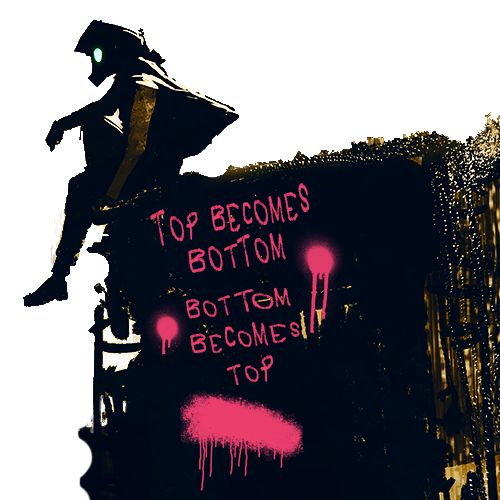 TOP BECOMES
BOTTOM
BOTTOM
BECOMES
TOP